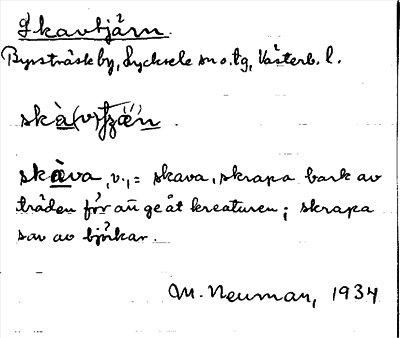 Skavtjärn.
Byssträsk by, Lycksele sn o. tg, Västerb. l.
skàva, v., = skava, skrapa bark av
träden för att ge åt kreaturen; skrapa
sav av björkar.
M. Neuman, 1934